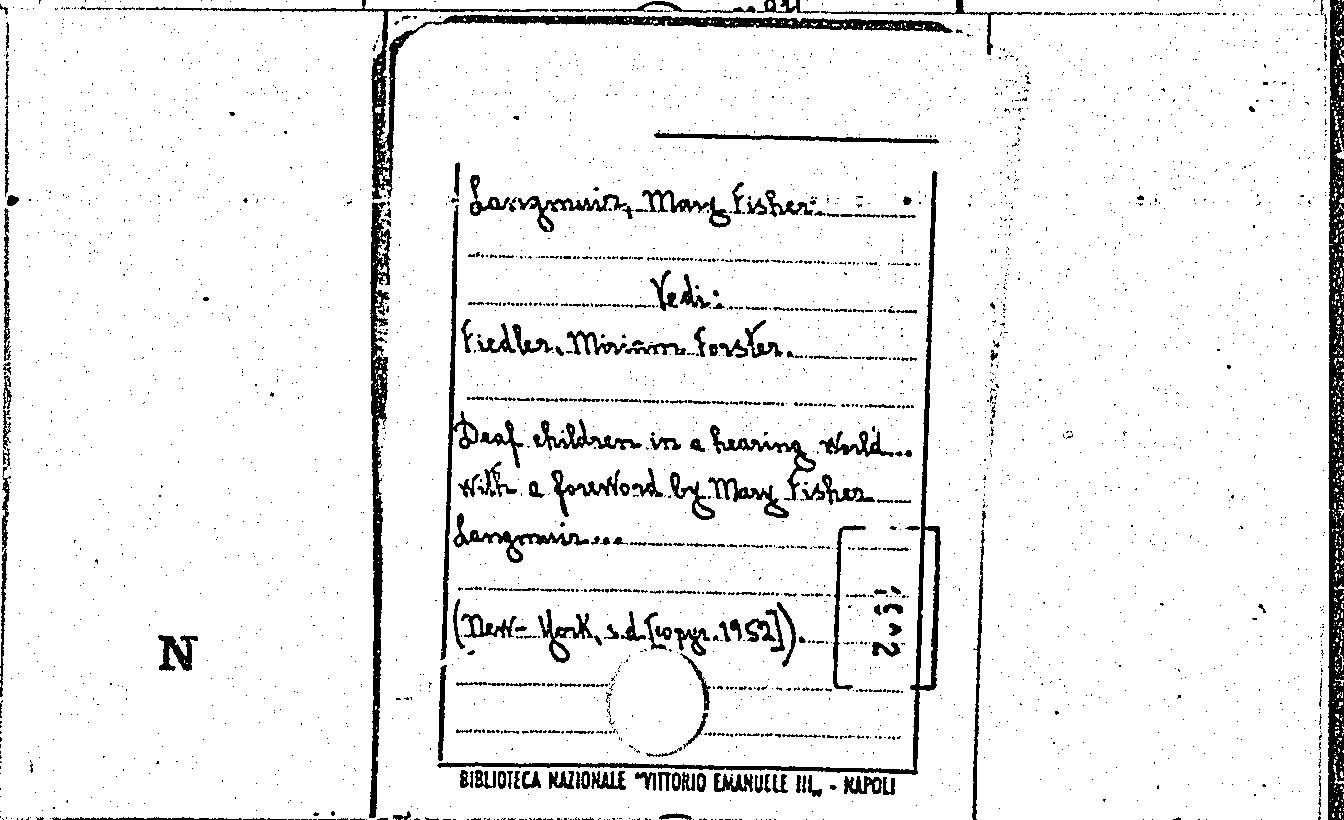 Langmuir, Mary Fisher.
Vedi:
Fiedler, Miriam Forster.
Deaf children in a hearing world...
with a foreword by Mary Fisher
Langmuir...
(New-York, s.d. [copyr. 1952]).
N
BIBLIOTECA NAZIONALE "VITTORIO EMANUELE III„ - NAPOLI